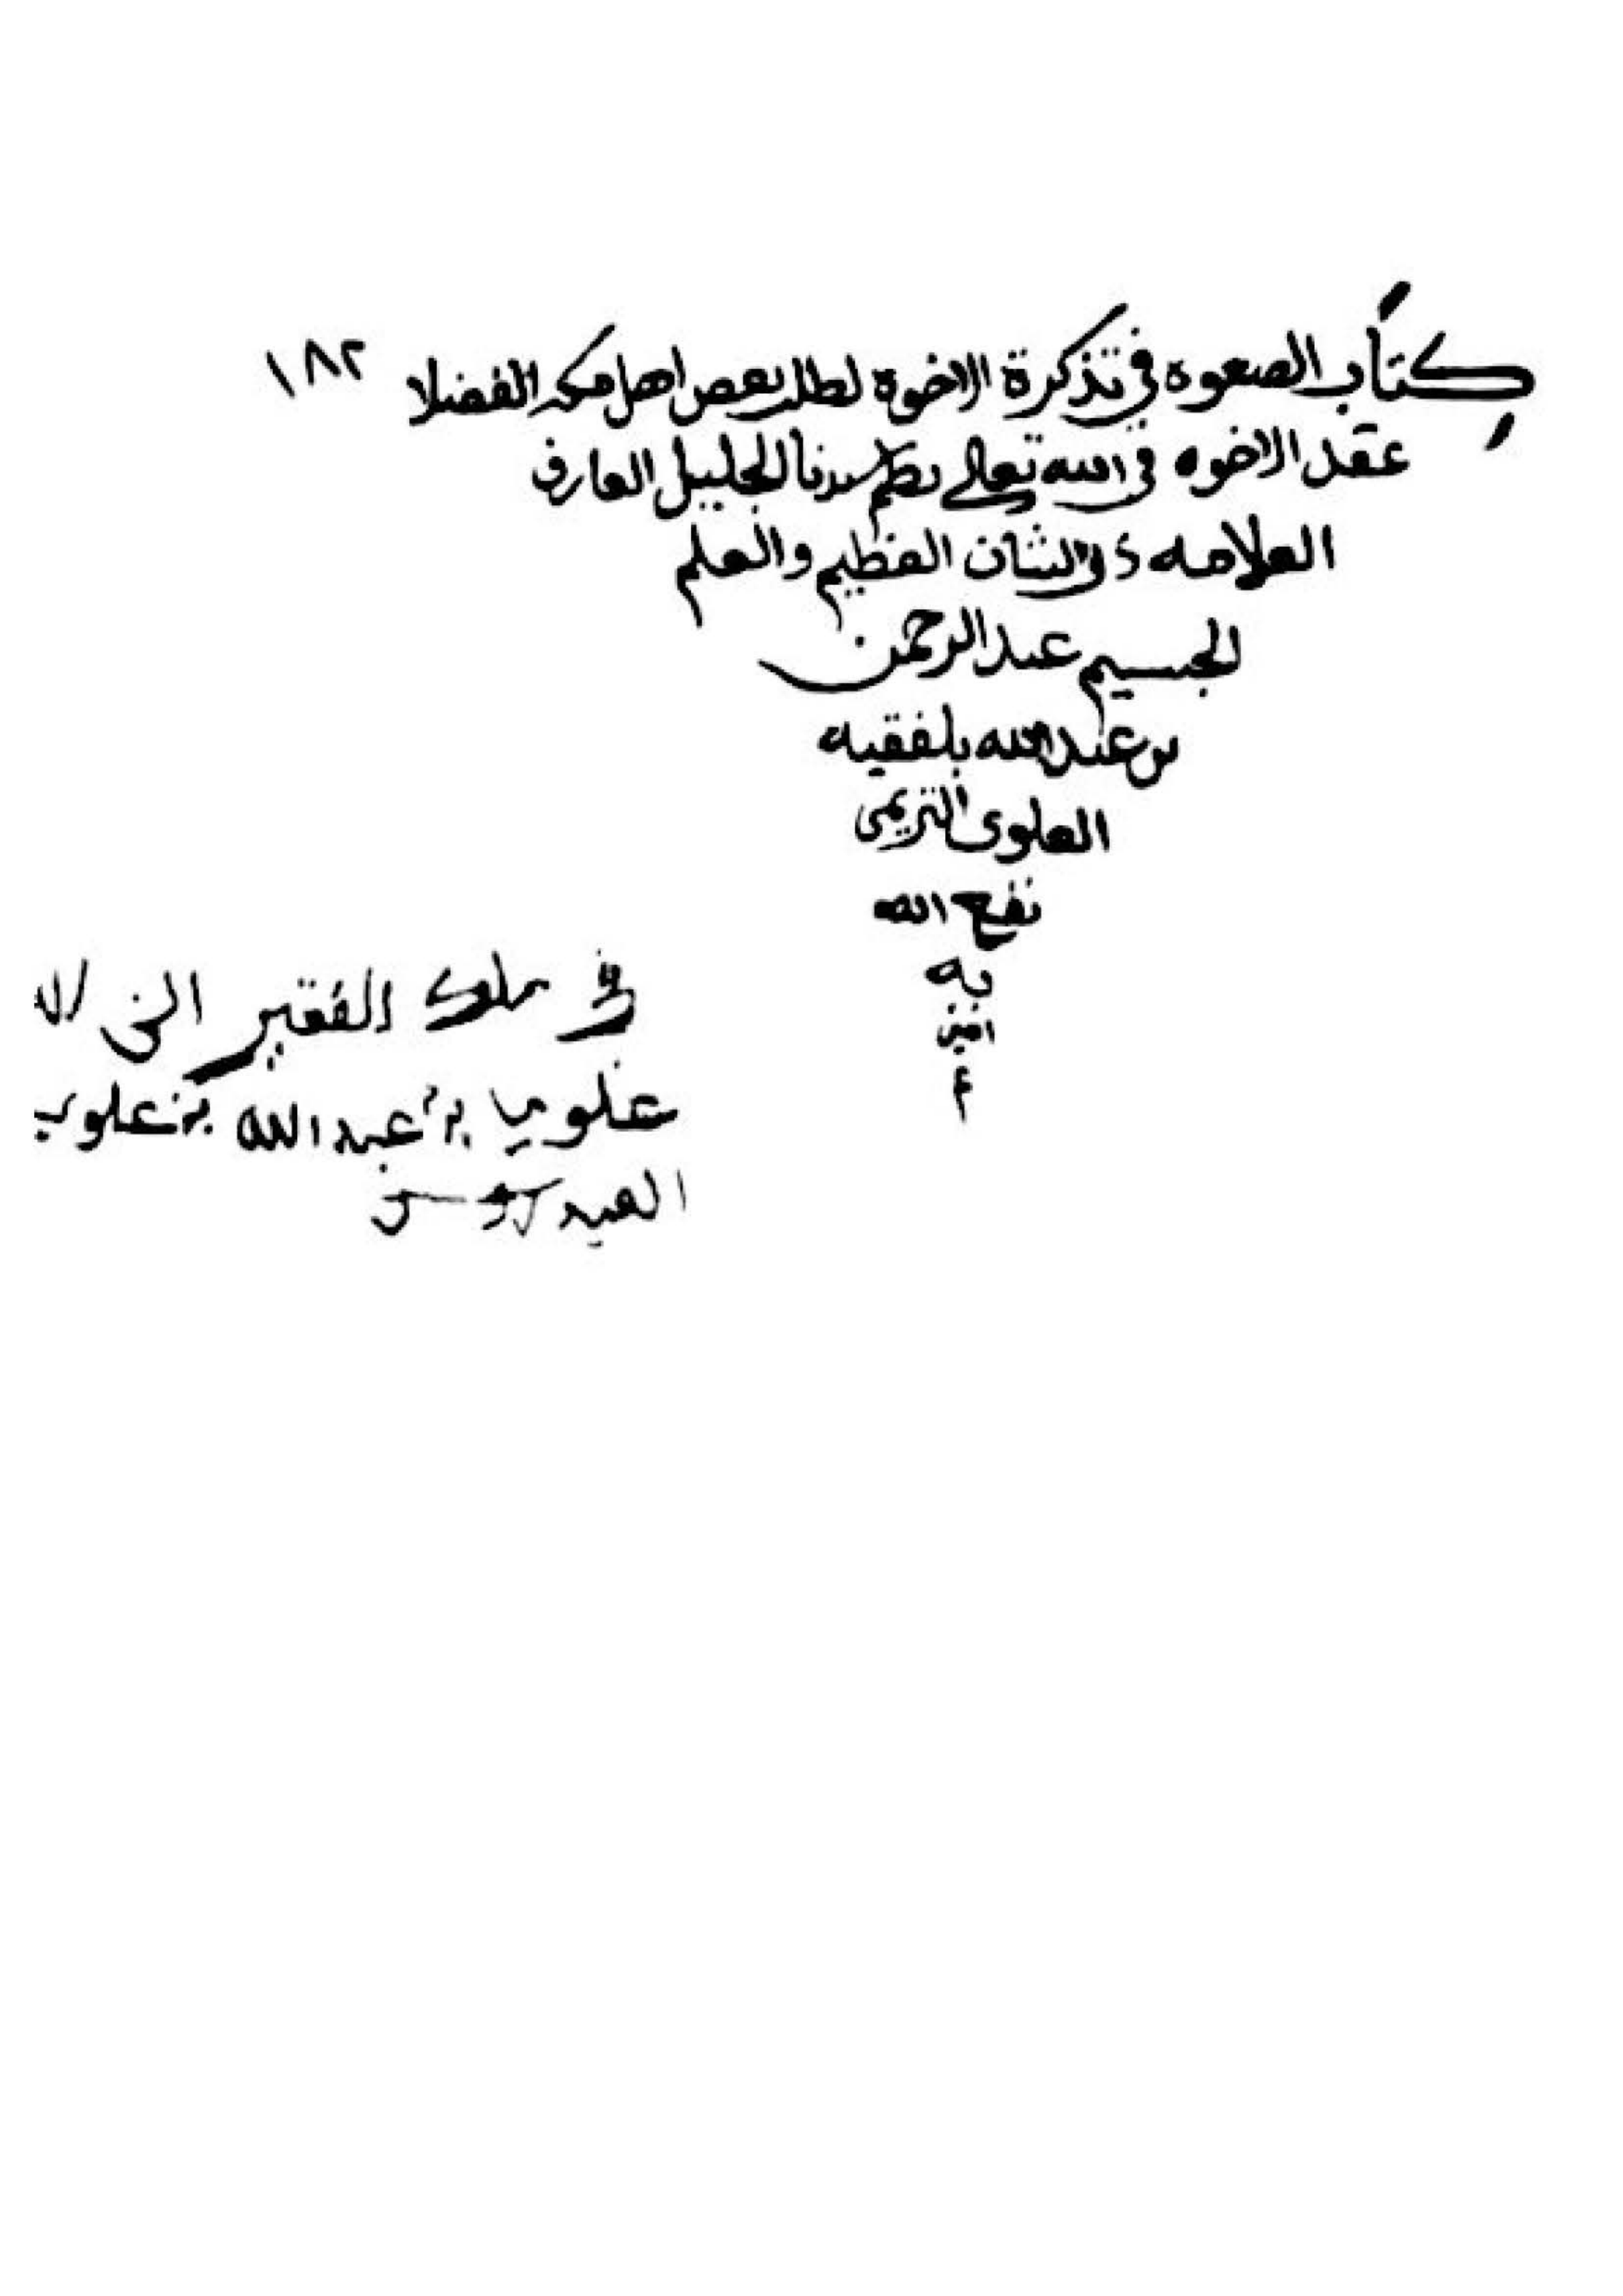 كتاب الصعوه في تذكرة الاخوة لطلب بعض اهل مكه الفضلا ١٨٢
عقد الاخوه في الله تعالى نظم سيدنا الجليل العارف
العلامه ذو الشان العظيم والعلم
الجسيم عبد الرحمن
بن عبد الله بلفقيه
العلوي التريمي
نفع الله
به
امين
م
في ملك الفقير الى الله
علوي بن عبد الله بن علوي
العيدروس